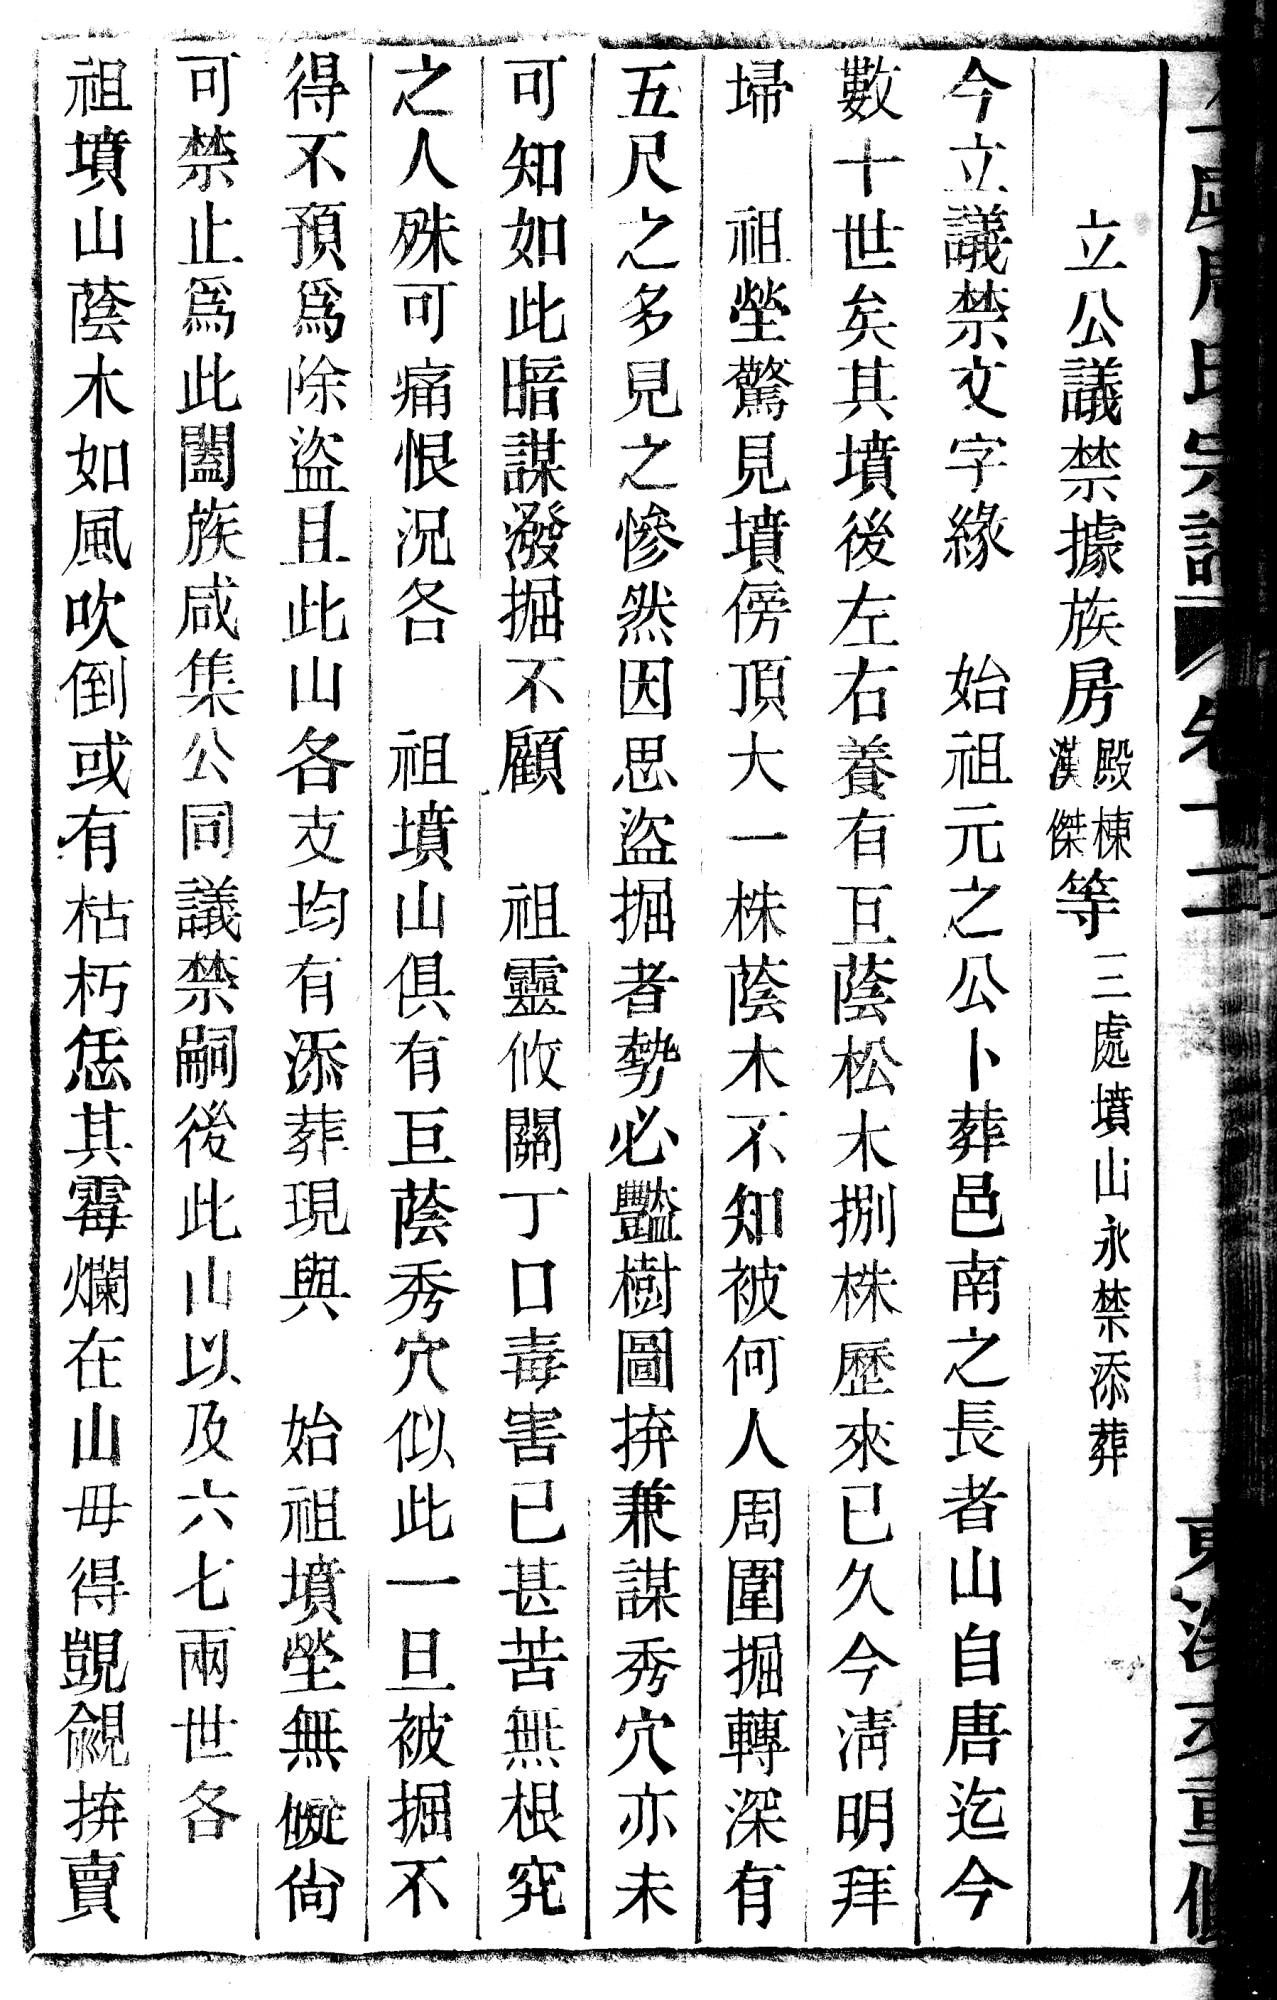 立公議禁據族房殿棟漢傑等三處墳山永禁添葬
今立議禁文字緣　始祖元之公卜葬邑南之長者山自唐迄今
數十世矣其墳後左右養有巨蔭松木捌株歷來已久今淸明拜
埽　祖塋驚見墳傍頂大一株蔭木不知被何人周圍掘轉深有
五尺之多見之慘然因思盜掘者勢必豔樹圖拚兼謀秀穴亦未
可知如此暗謀潑掘不顧　祖靈攸關丁口毒害已甚苦無根究
之人殊可痛恨況各　祖墳山俱有巨蔭秀穴似此一旦被掘不
得不預爲除盜且此山各支均有添葬現與　始祖墳塋無礙尙
可禁止爲此闔族咸集公同議禁嗣後此山以及六七兩世各
祖墳山蔭木如風吹倒或有枯朽恁其霉爛在山毋得覬覦拚賣
周氏宗譜　卷十二　重修